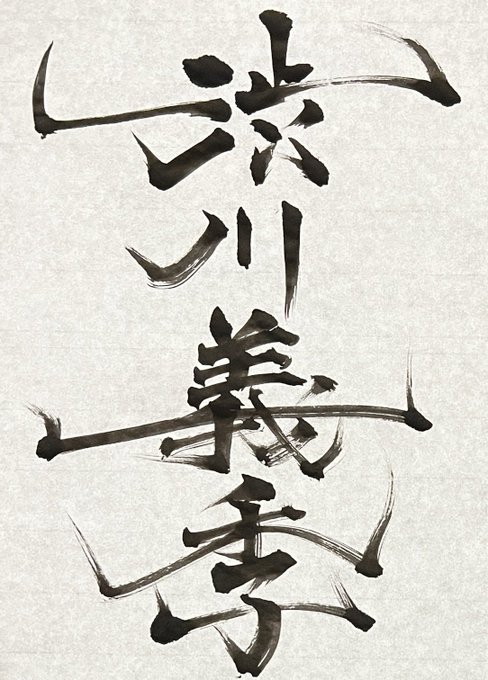 渋川義季